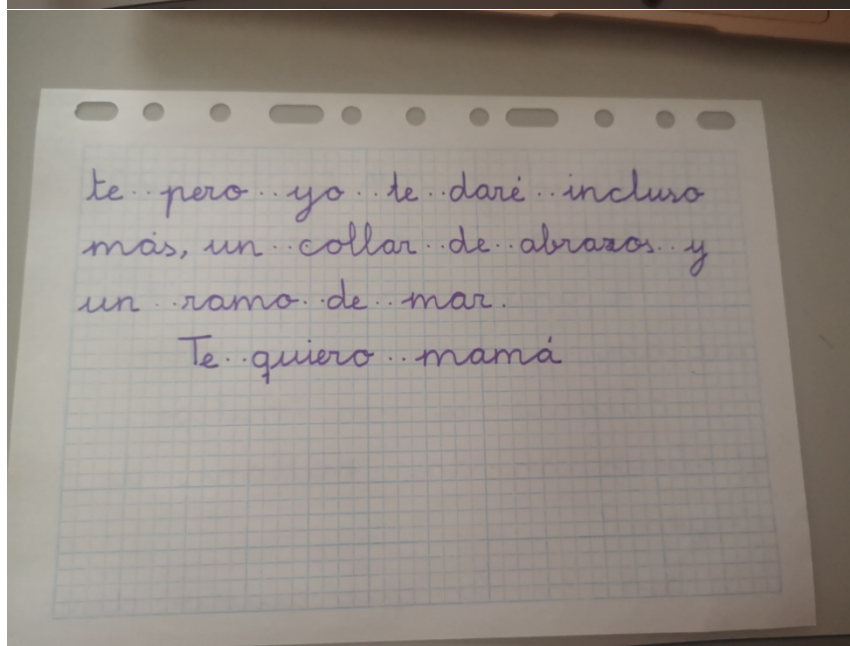 te pero yo te daré incluso
más, un collar de abrazos y
un ramo de mar.
Te quiero mamá